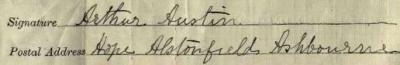 Signature Arthur Austin
Postal Address Hope Alstonfield Ashbourne